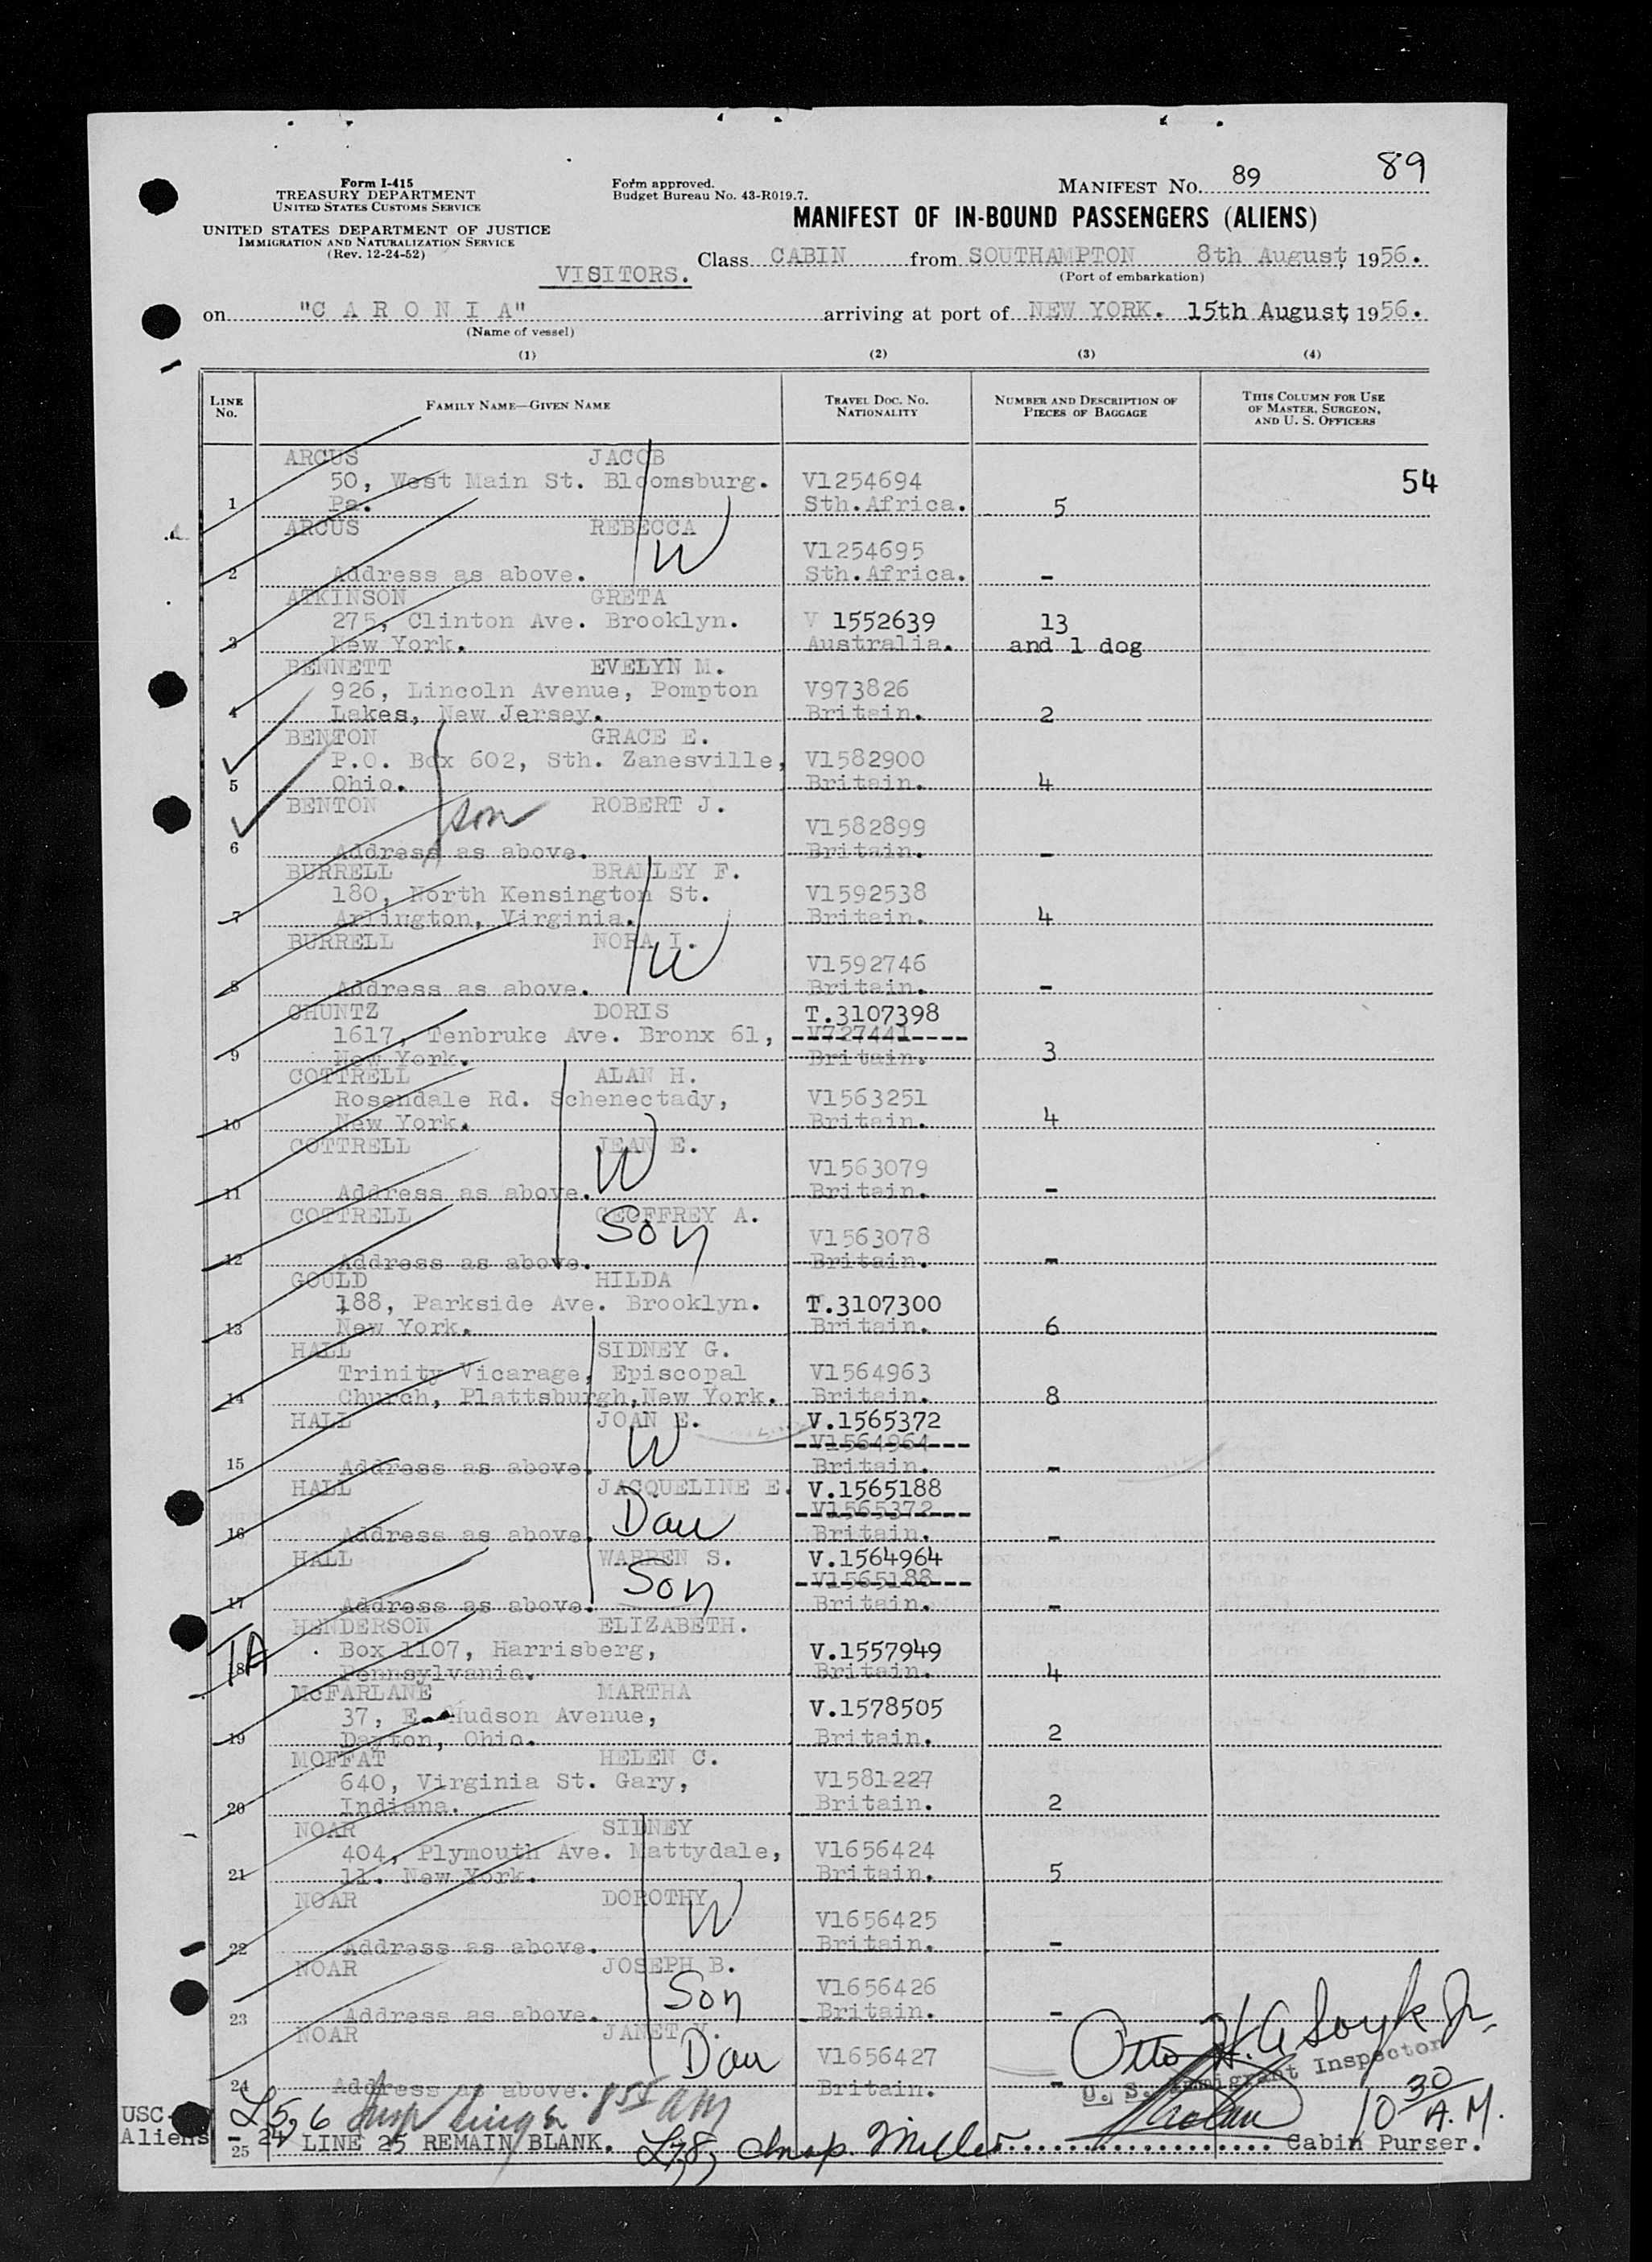 89
Form I-415
TREASURY DEPARTMENT
UNITED STATES CUSTOMS SERVICE
UNITED STATES DEPARTMENT OF JUSTICE
IMMIGRATION AND NATURALIZATION SERVICE
(Rev. 12-24-52)
Form approved.
Budget Bureau No. 43-R019.7.
MANIFEST NO. 89
MANIFEST OF IN-BOUND PASSENGERS (ALIENS)
VISITORS.
Class CABIN from SOUTHAMPTON 8th August, 1956.
(Port of embarkation)
on "C A R O N I A" arriving at port of NEW YORK. 15th August, 1956.
(Name of vessel)
(1) (2) (3) (4)
LINE No. FAMILY NAME—GIVEN NAME TRAVEL DOC. NO. NATIONALITY NUMBER AND DESCRIPTION OF PIECES OF BAGGAGE THIS COLUMN FOR USE OF MASTER, SURGEON, AND U. S. OFFICERS
ARCUS JACOB
50, West Main St. Bloomsburg. V1254694 54
1 Pa. Sth.Africa. 5
ARCUS REBECCA
W V1254695
2 Address as above. Sth.Africa. -
ATKINSON GRETA
275, Clinton Ave. Brooklyn. V 1552639 13
3 New York. Australia. and 1 dog
BENNETT EVELYN M.
926, Lincoln Avenue, Pompton V973826
4 Lakes, New Jersey. Britain. 2
BENTON GRACE E.
P.O. Box 602, Sth. Zanesville, V1582900
5 Ohio. Britain. 4
BENTON son ROBERT J.
V1582899
6 Address as above. Britain. -
BURRELL BRADLEY F.
180, North Kensington St. V1592538
7 Arlington, Virginia. Britain. 4
BURRELL NORA I.
W V1592746
8 Address as above. Britain. -
CHUNTZ DORIS T.3107398
1617, Tenbruke Ave. Bronx 61, V727441
9 New York. Britain. 3
COTTRELL ALAN H.
Rosendale Rd. Schenectady, V1563251
10 New York. Britain. 4
COTTRELL JEAN E.
W V1563079
11 Address as above. Britain. -
COTTRELL GEOFFREY A.
Son V1563078
12 Address as above. Britain. -
GOULD HILDA
188, Parkside Ave. Brooklyn. T.3107300
13 New York. Britain. 6
HALL SIDNEY G.
Trinity Vicarage, Episcopal V1564963
14 Church, Plattsburgh,New York. Britain. 8
HALL JOAN E. V.1565372
W V1564964
15 Address as above. Britain. -
HALL JACQUELINE E. V.1565188
Dau V1565372
16 Address as above. Britain. -
HALL WARREN S. V.1564964
Son V1565188
17 Address as above. Britain. -
HENDERSON ELIZABETH.
1A Box 1107, Harrisberg, V.1557949
18 Pennsylvania. Britain. 4
McFARLANE MARTHA
37, E. Hudson Avenue, V.1578505
19 Dayton, Ohio. Britain. 2
MOFFAT HELEN C.
640, Virginia St. Gary, V1581227
20 Indiana. Britain. 2
NOAR SIDNEY
404, Plymouth Ave. Mattydale, V1656424
21 11. New York. Britain. 5
NOAR DOROTHY
W V1656425
22 Address as above. Britain. -
NOAR JOSEPH B.
Son V1656426
23 Address as above. Britain. -
NOAR JANET V.
Dau V1656427
24 Address as above. Britain. -
Otto H. A Soyk Jr.
U. S. Immigrant Inspector
10 30 A.M.
USC-
L 5, 6 Insp 8 55 am
Aliens - 24
25 LINE 25 REMAIN BLANK. L 7,8, Insp. Miller Cabin Purser.